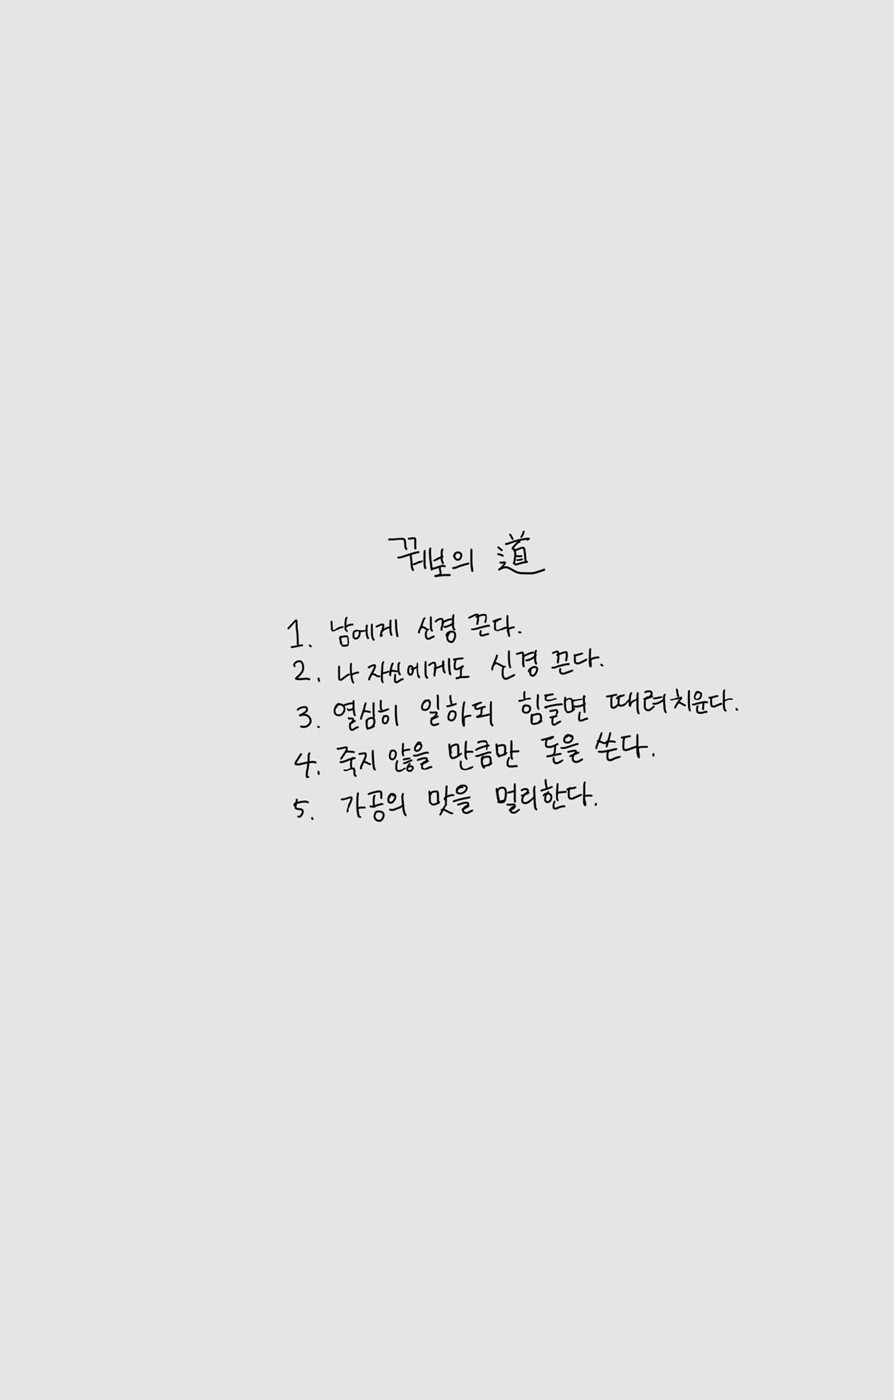 꿔보의 道
1. 남에게 신경 끈다.
2. 나 자신에게도 신경 끈다.
3. 열심히 일하되 힘들면 때려치운다.
4. 죽지 않을 만큼만 돈을 쓴다.
5. 가공의 맛을 멀리한다.